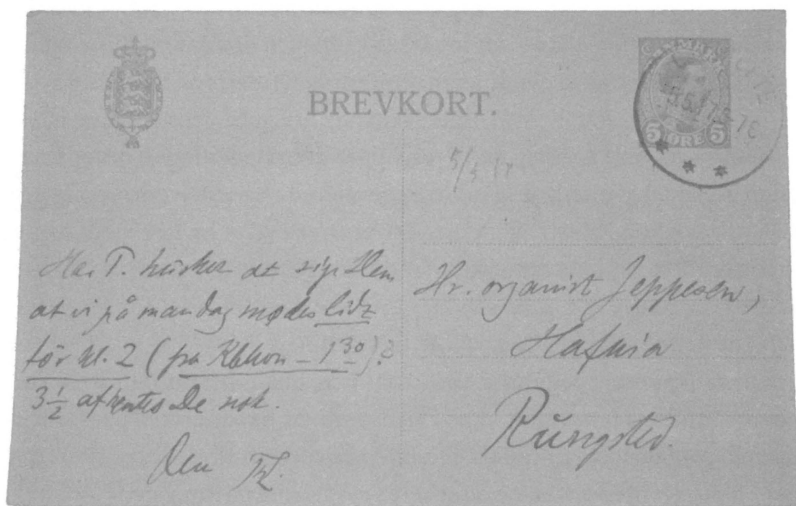 BREVKORT.
DANMARK
5 ØRE 5
5/5 17
Har T. husket at sige Dem
at vi på mandag mødes lidt
før kl. 2 (fra Kbhvn – 1 30)?
3 1/2 afhentes De nok.
Den
Hr. organist Jeppesen,
Hafnia
Rungsted.